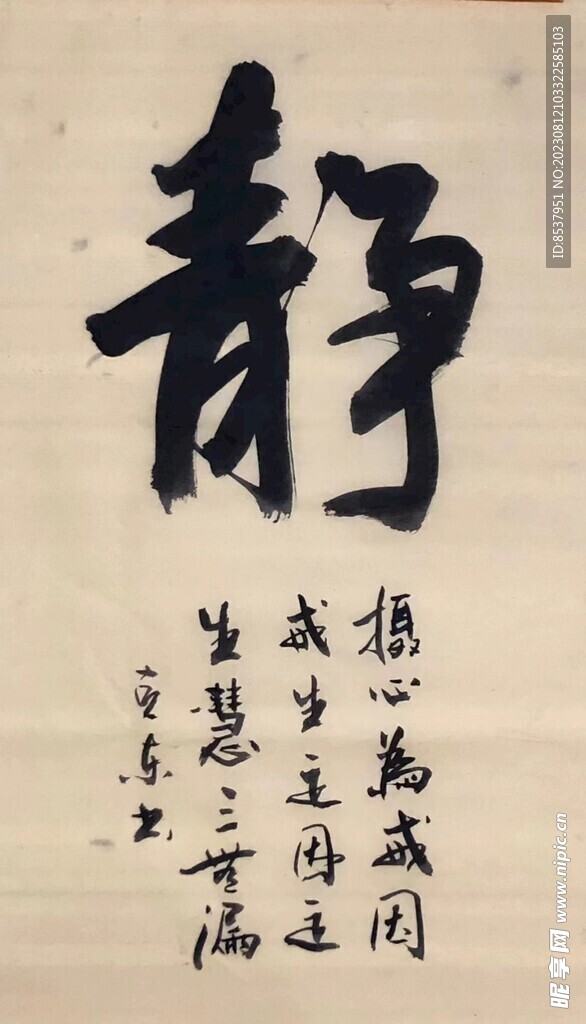 静
摄心為戒因
戒生定因定
生慧三無漏
克东书
ID:8537951 NO:20230812103322585103
昵享网 www.nipic.cn